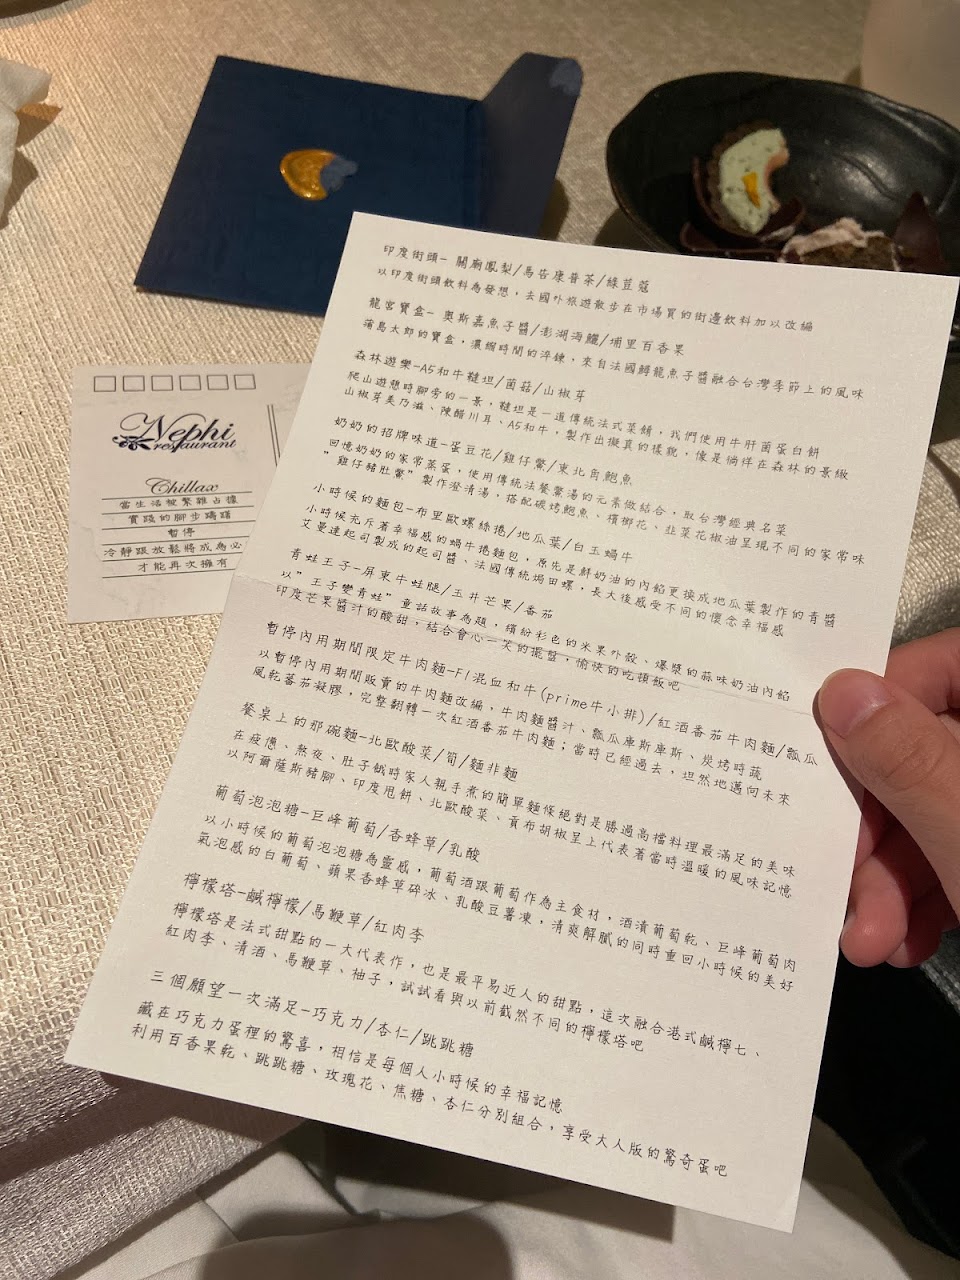 Nephi
restaurant
Chillax
當生活被繁雜占據
實踐的腳步躊躇
暫停
冷靜跟放鬆將成為必
才能再次擁有
印度街頭-關廟鳳梨/馬告康普茶/綠荳蔻
以印度街頭飲料為發想，去國外旅遊散步在市場買的街邊飲料加以改編
龍宮寶盒-奧斯嘉魚子醬/澎湖海鱺/埔里百香果
蒲島太郎的寶盒，濃縮時間的淬鍊，來自法國鱘龍魚子醬融合台灣季節上的風味
森林遊樂-A5和牛韃坦/菌菇/山椒芽
爬山遊憩時腳旁的一景，韃坦是一道傳統法式菜餚，我們使用牛肝菌蛋白餅
山椒芽美乃滋、陳醋川耳、A5和牛，製作出擬真的樣貌，像是徜徉在森林的景緻
奶奶的招牌味道-蛋豆花/雞仔鱉/東北角鮑魚
回憶奶奶的家常蒸蛋，使用傳統法餐鱉湯的元素做結合，取台灣經典名菜
"雞仔豬肚鱉"製作澄清湯，搭配碳烤鮑魚、檳榔花、韭菜花椒油呈現不同的家常味
小時候的麵包-布里歐螺絲捲/地瓜葉/白玉蝸牛
小時候充斥著幸福感的蝸牛捲麵包，原先是鮮奶油的內餡更換成地瓜葉製作的青醬
艾曼達起司製成的起司醬、法國傳統焗田螺，長大後感受不同的懷念幸福感
青蛙王子-屏東牛蛙腿/玉井芒果/番茄
以"王子變青蛙"童話故事為題，繽紛彩色的米果外殼、爆漿的蒜味奶油內餡
印度芒果醬汁的酸甜，結合會心一笑的擺盤，愉快的吃頓飯吧
暫停內用期間限定牛肉麵-F1混血和牛(prime牛小排)/紅酒番茄牛肉麵/瓢瓜
以暫停內用期間販賣的牛肉麵改編，牛肉麵醬汁、瓢瓜庫斯庫斯、炭烤時蔬
風乾蕃茄凝膠，完整翻轉一次紅酒番茄牛肉麵；當時已經過去，坦然地邁向未來
餐桌上的那碗麵-北歐酸菜/筍/麵非麵
在疲憊、熬夜、肚子餓時家人親手煮的簡單麵條絕對是勝過高檔料理最滿足的美味
以阿爾薩斯豬腳、印度甩餅、北歐酸菜、貢布胡椒呈上代表著當時溫暖的風味記憶
葡萄泡泡糖-巨峰葡萄/香蜂草/乳酸
以小時候的葡萄泡泡糖為靈感，葡萄酒跟葡萄作為主食材，酒漬葡萄乾、巨峰葡萄肉
氣泡感的白葡萄、蘋果香蜂草碎冰、乳酸豆薯凍，清爽解膩的同時重回小時候的美好
檸檬塔-鹹檸檬/馬鞭草/紅肉李
檸檬塔是法式甜點的一大代表作，也是最平易近人的甜點，這次融合港式鹹檸七、
紅肉李、清酒、馬鞭草、柚子，試試看與以前截然不同的檸檬塔吧
三個願望一次滿足-巧克力/杏仁/跳跳糖
藏在巧克力蛋裡的驚喜，相信是每個人小時候的幸福記憶
利用百香果乾、跳跳糖、玫瑰花、焦糖、杏仁分別組合，享受大人版的驚奇蛋吧